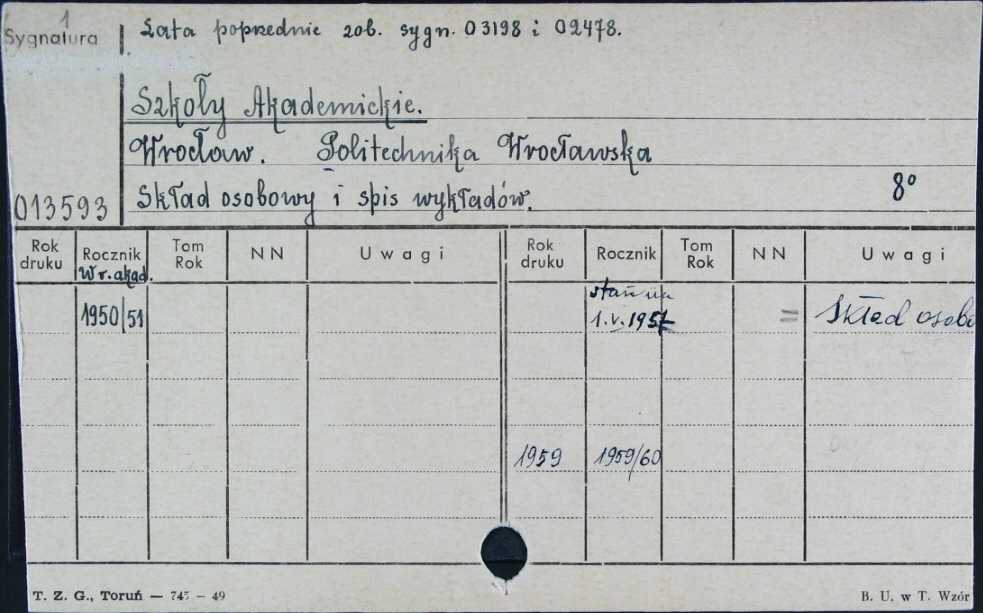 1
Sygnatura
Lata poprzednie zob. sygn. 03198 i 02478.
Szkoły Akademickie.
Wrocław. Politechnika Wrocławska
013593 Skład osobowy i spis wykładów. 8°
Rok druku Rocznik Tom Rok NN Uwagi Rok druku Rocznik Tom Rok NN Uwagi
W r. akad.
1950/51 stan na
1.V.1957 = Skład osobo
1959 1959/60
T. Z. G., Toruń — 745 – 49 B. U. w T. Wzór